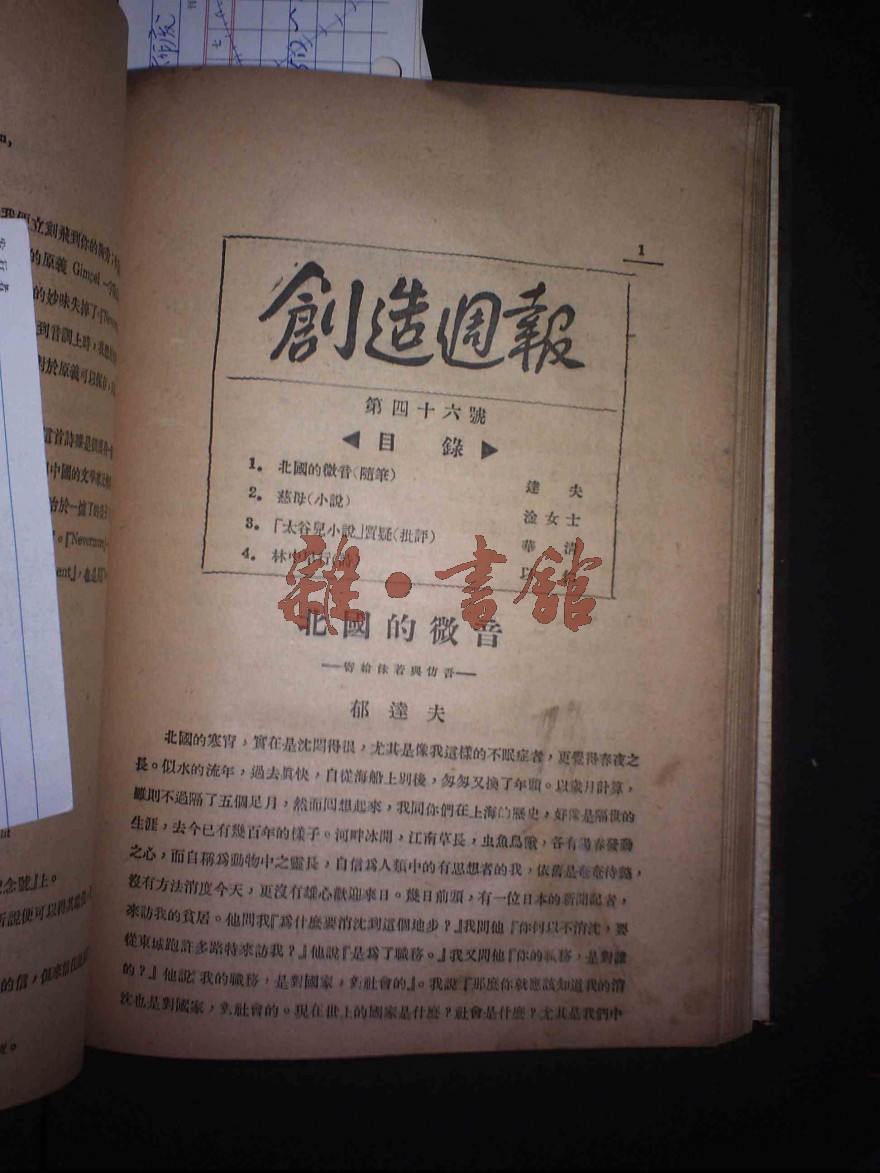 1
創造週報
第四十六號
◀目 錄▶
1. 北國的微音(隨筆) 達 夫
2. 慈母(小說) 淦女士
3. 「太谷兒小說」質疑(批評) 華 清
4. 林中
雜·書館
北國的微音
——寄給沫若與仿吾——
郁達夫
北國的寒宵,實在是沈悶得很,尤其是像我這樣的不眠症者,更覺得春夜之
長。似水的流年,過去眞快,自從海船上別後,匆匆又換了年頭。以歲月計算,
雖則不過隔了五個足月,然而回想起來,我同你們在上海的歷史,好像是隔世的
生涯,去今已有幾百年的樣子。河畔冰開,江南草長,虫魚鳥獸,各有陽春發動
之心,而自稱爲動物中之靈長,自信爲人類中的有思想者的我,依舊是奄奄待斃,
沒有方法消度今天,更沒有雄心歡迎來日。幾日前頭,有一位日本的新聞記者,
來訪我的貧居。他問我『爲什麼要消沈到這個地步?』我問他『你何以不消沈,要
從東城跑許多路特來訪我?』他說『是爲了職務。』我又問他『你的職務,是對誰
的?』他說『我的職務,是對國家,對社會的』。我說『那麼你就應該知道我的消
沈也是對國家,對社會的。現在世上的國家是什麼?社會是什麼?尤其是我們中
我便立刻飛到你的
的原義 Gimpel 一
的妙味失掉了
到音調上時,
對於原義可以
這首詩雖是
中國的文學
冶於一爐了的
念號』上。
所說便可以
的信,但